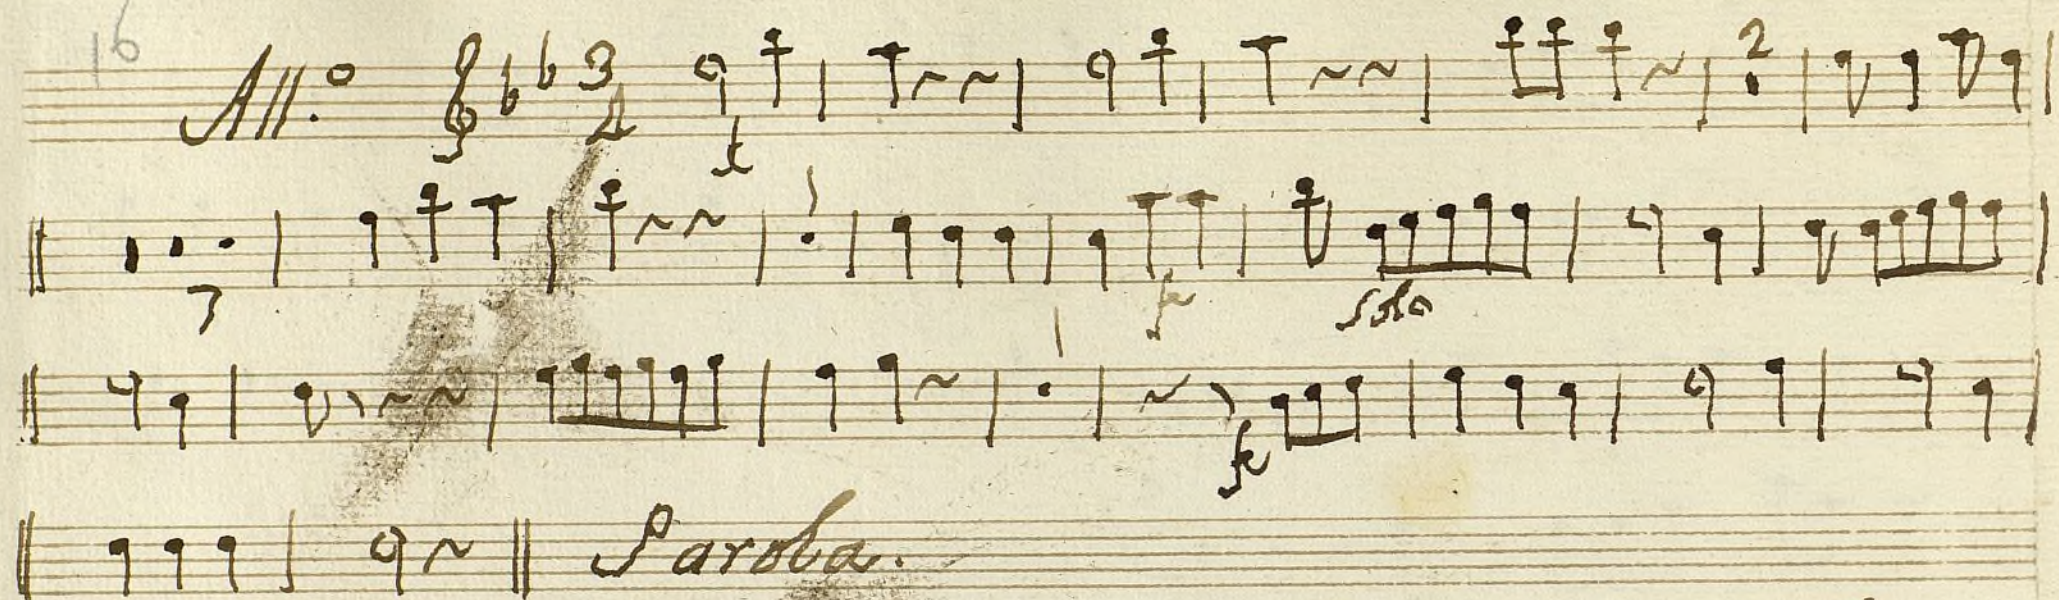 16
All.º 3 4 2
f
7
f solo
f
Parola.